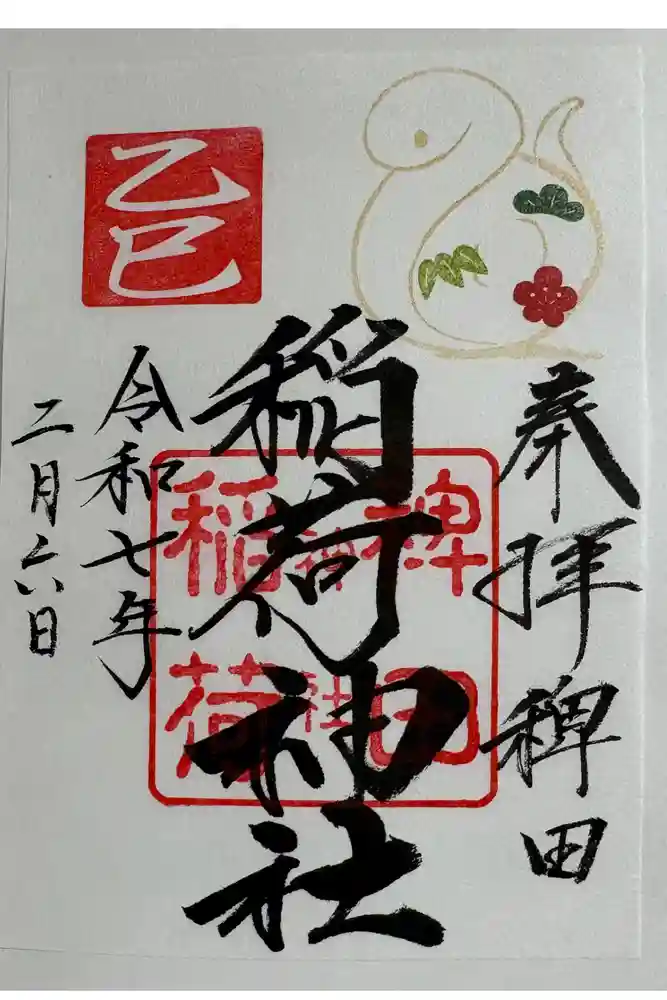 奉拝 稗田
稲荷神社
稗田
神社
稲荷
乙巳
令和七年
二月六日